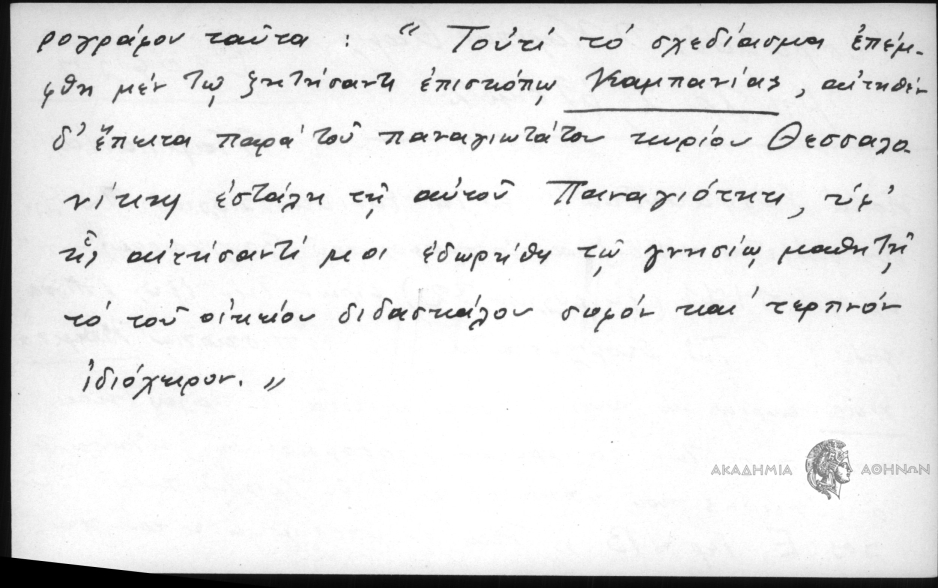 ρογράφον ταῦτα : “ Τουτὶ τὸ σχεδίασμα ἐπέμ-
φθη μὲν τῷ ζητήσαντι ἐπισκόπῳ Καμπανίας, αἰτηθὲν
δ’ ἔπειτα παρὰ τοῦ παναγιωτάτου κυρίου Θεσσαλο
νίκης ἐστάλη τῇ αὐτοῦ Παναγιότητι,
αἰτήσαντί μοι ἐδωρήθη τῷ γνησίῳ μαθητῇ
τὸ τοῦ οἰκείου διδασκάλου σοφὸν καὶ τερπνὸν
ἰδιόχειρον. ”
ΑΚΑΔΗΜΙΑ ΑΘΗΝΩΝ